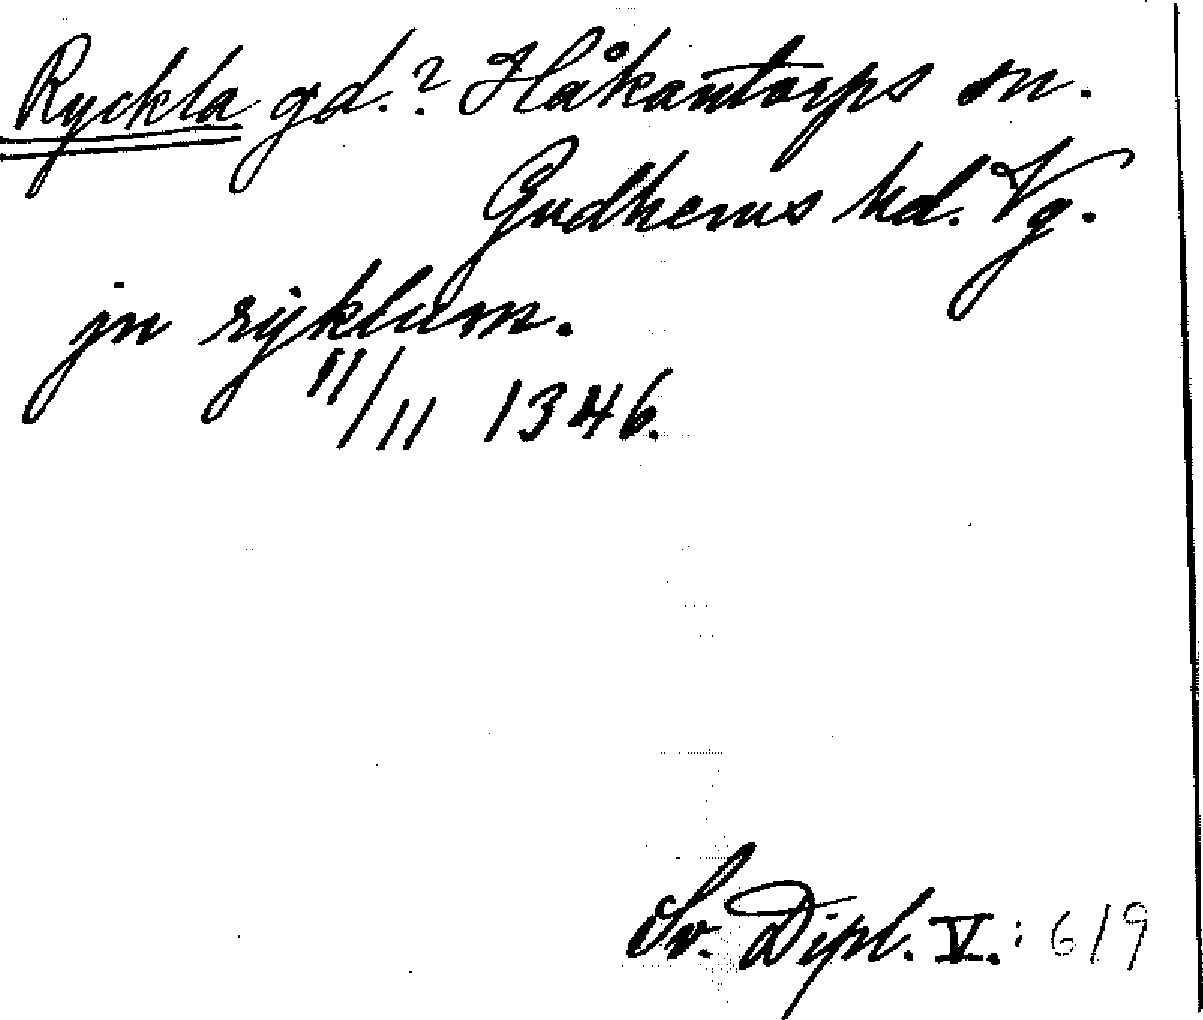 Ryckla gd.? Håkantorps sn.
Gudhems hd. Vg.
jn rijklum.
11/11 1346.
Sv. Dipl. V.: 619